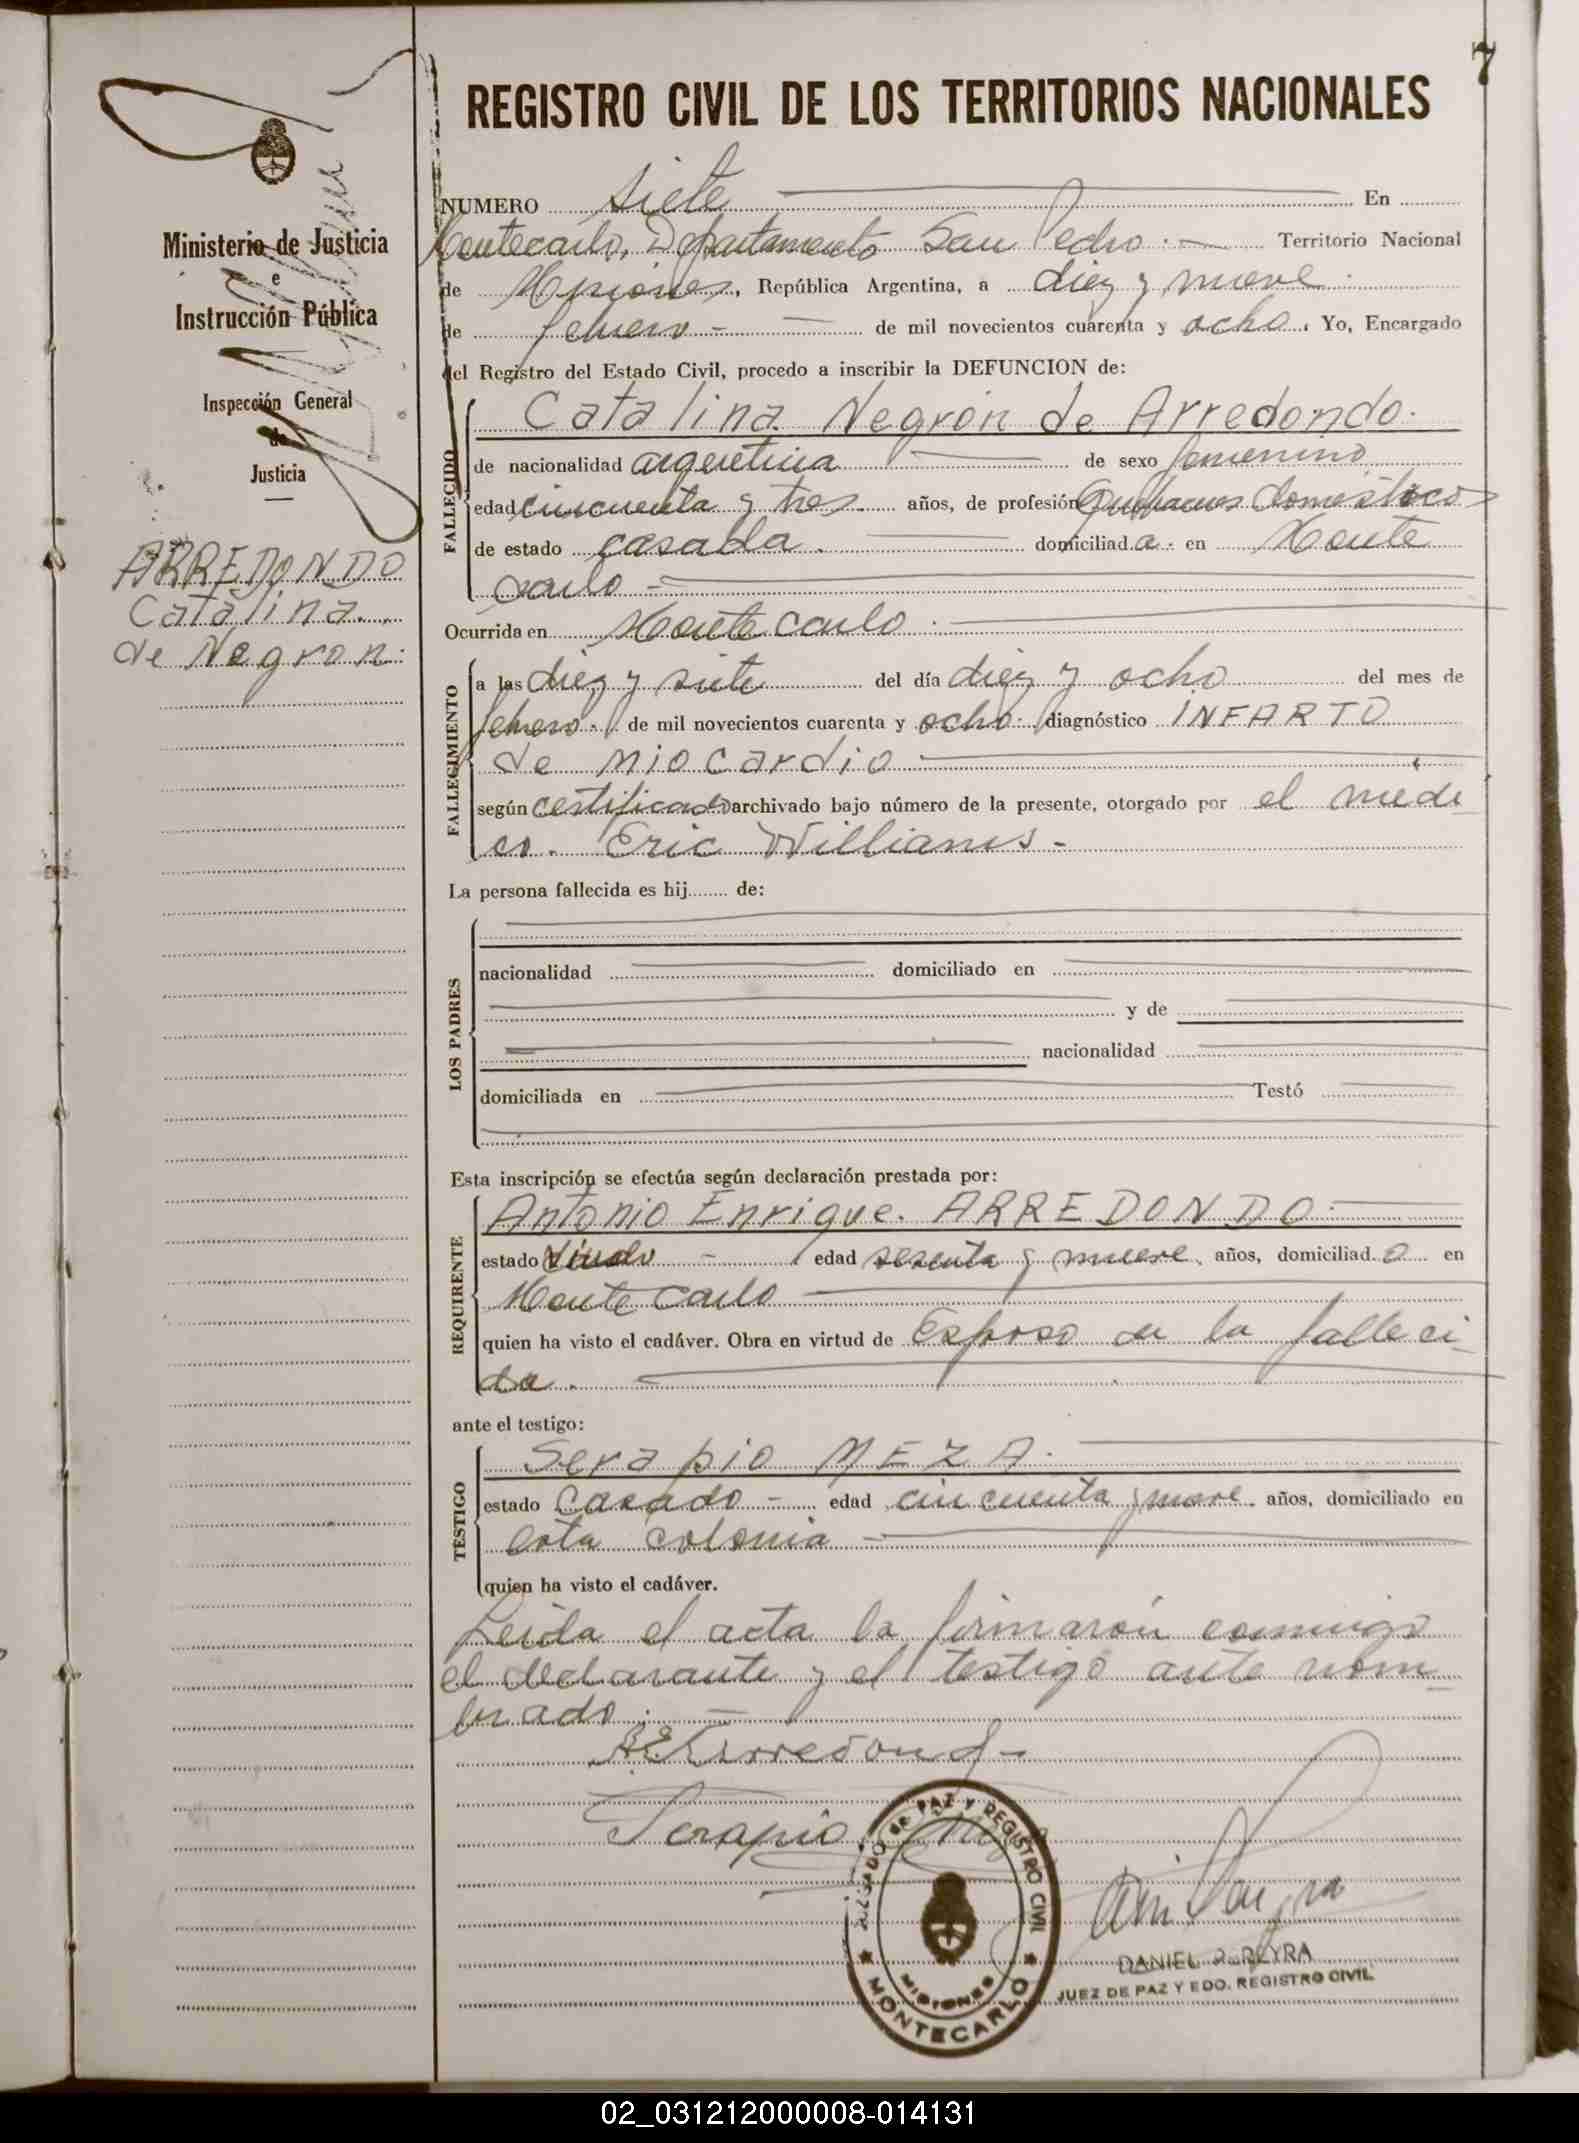 7
REGISTRO CIVIL DE LOS TERRITORIOS NACIONALES
Ministerio de Justicia
e
Instrucción Pública
Inspección General
de
Justicia
ARREDONDO
Catalina
de Negron.
NUMERO siete En
Montecarlo, Departamento San Pedro.- Territorio Nacional
de Misiones, República Argentina, a diez y nueve
de febrero - de mil novecientos cuarenta y ocho. Yo, Encargado
del Registro del Estado Civil, procedo a inscribir la DEFUNCION de:
FALLECIDO
Catalina Negrón de Arredondo.
de nacionalidad argentina de sexo femenino
edad cincuenta y tres años, de profesión Quehaceres domésticos
de estado casada. domiciliada. en Monte
Carlo -
Ocurrida en Monte Carlo.
FALLECIMIENTO
a las diez y siete del día diez y ocho del mes de
febrero. de mil novecientos cuarenta y ocho. diagnóstico INFARTO
de miocardio
según certificado archivado bajo número de la presente, otorgado por el médi
co. Eric Willians.-
La persona fallecida es hij........ de:
LOS PADRES
nacionalidad domiciliado en
y de
nacionalidad
domiciliada en Testó
Esta inscripción se efectúa según declaración prestada por:
REQUIRENTE
Antonio Enrique. ARREDONDO.
estado viudo - edad sesenta y nueve años, domiciliado en
Monte Carlo
quien ha visto el cadáver. Obra en virtud de Esposo de la falleci-
da.
ante el testigo:
TESTIGO
Serapio MEZA.
estado Casado - edad cincuenta y nueve años, domiciliado en
esta colonia
quien ha visto el cadáver.
Leída el acta la firmarón conmigo
el declarante y el testigo ante nom-
brado.
A.E. Arredondo-
Serapio Meza
JUZGADO de PAZ Y REGISTRO CIVIL
MISIONES
MONTECARLO
DANIEL PEREYRA
JUEZ DE PAZ Y EDO. REGISTRO CIVIL
02_031212000008-014131